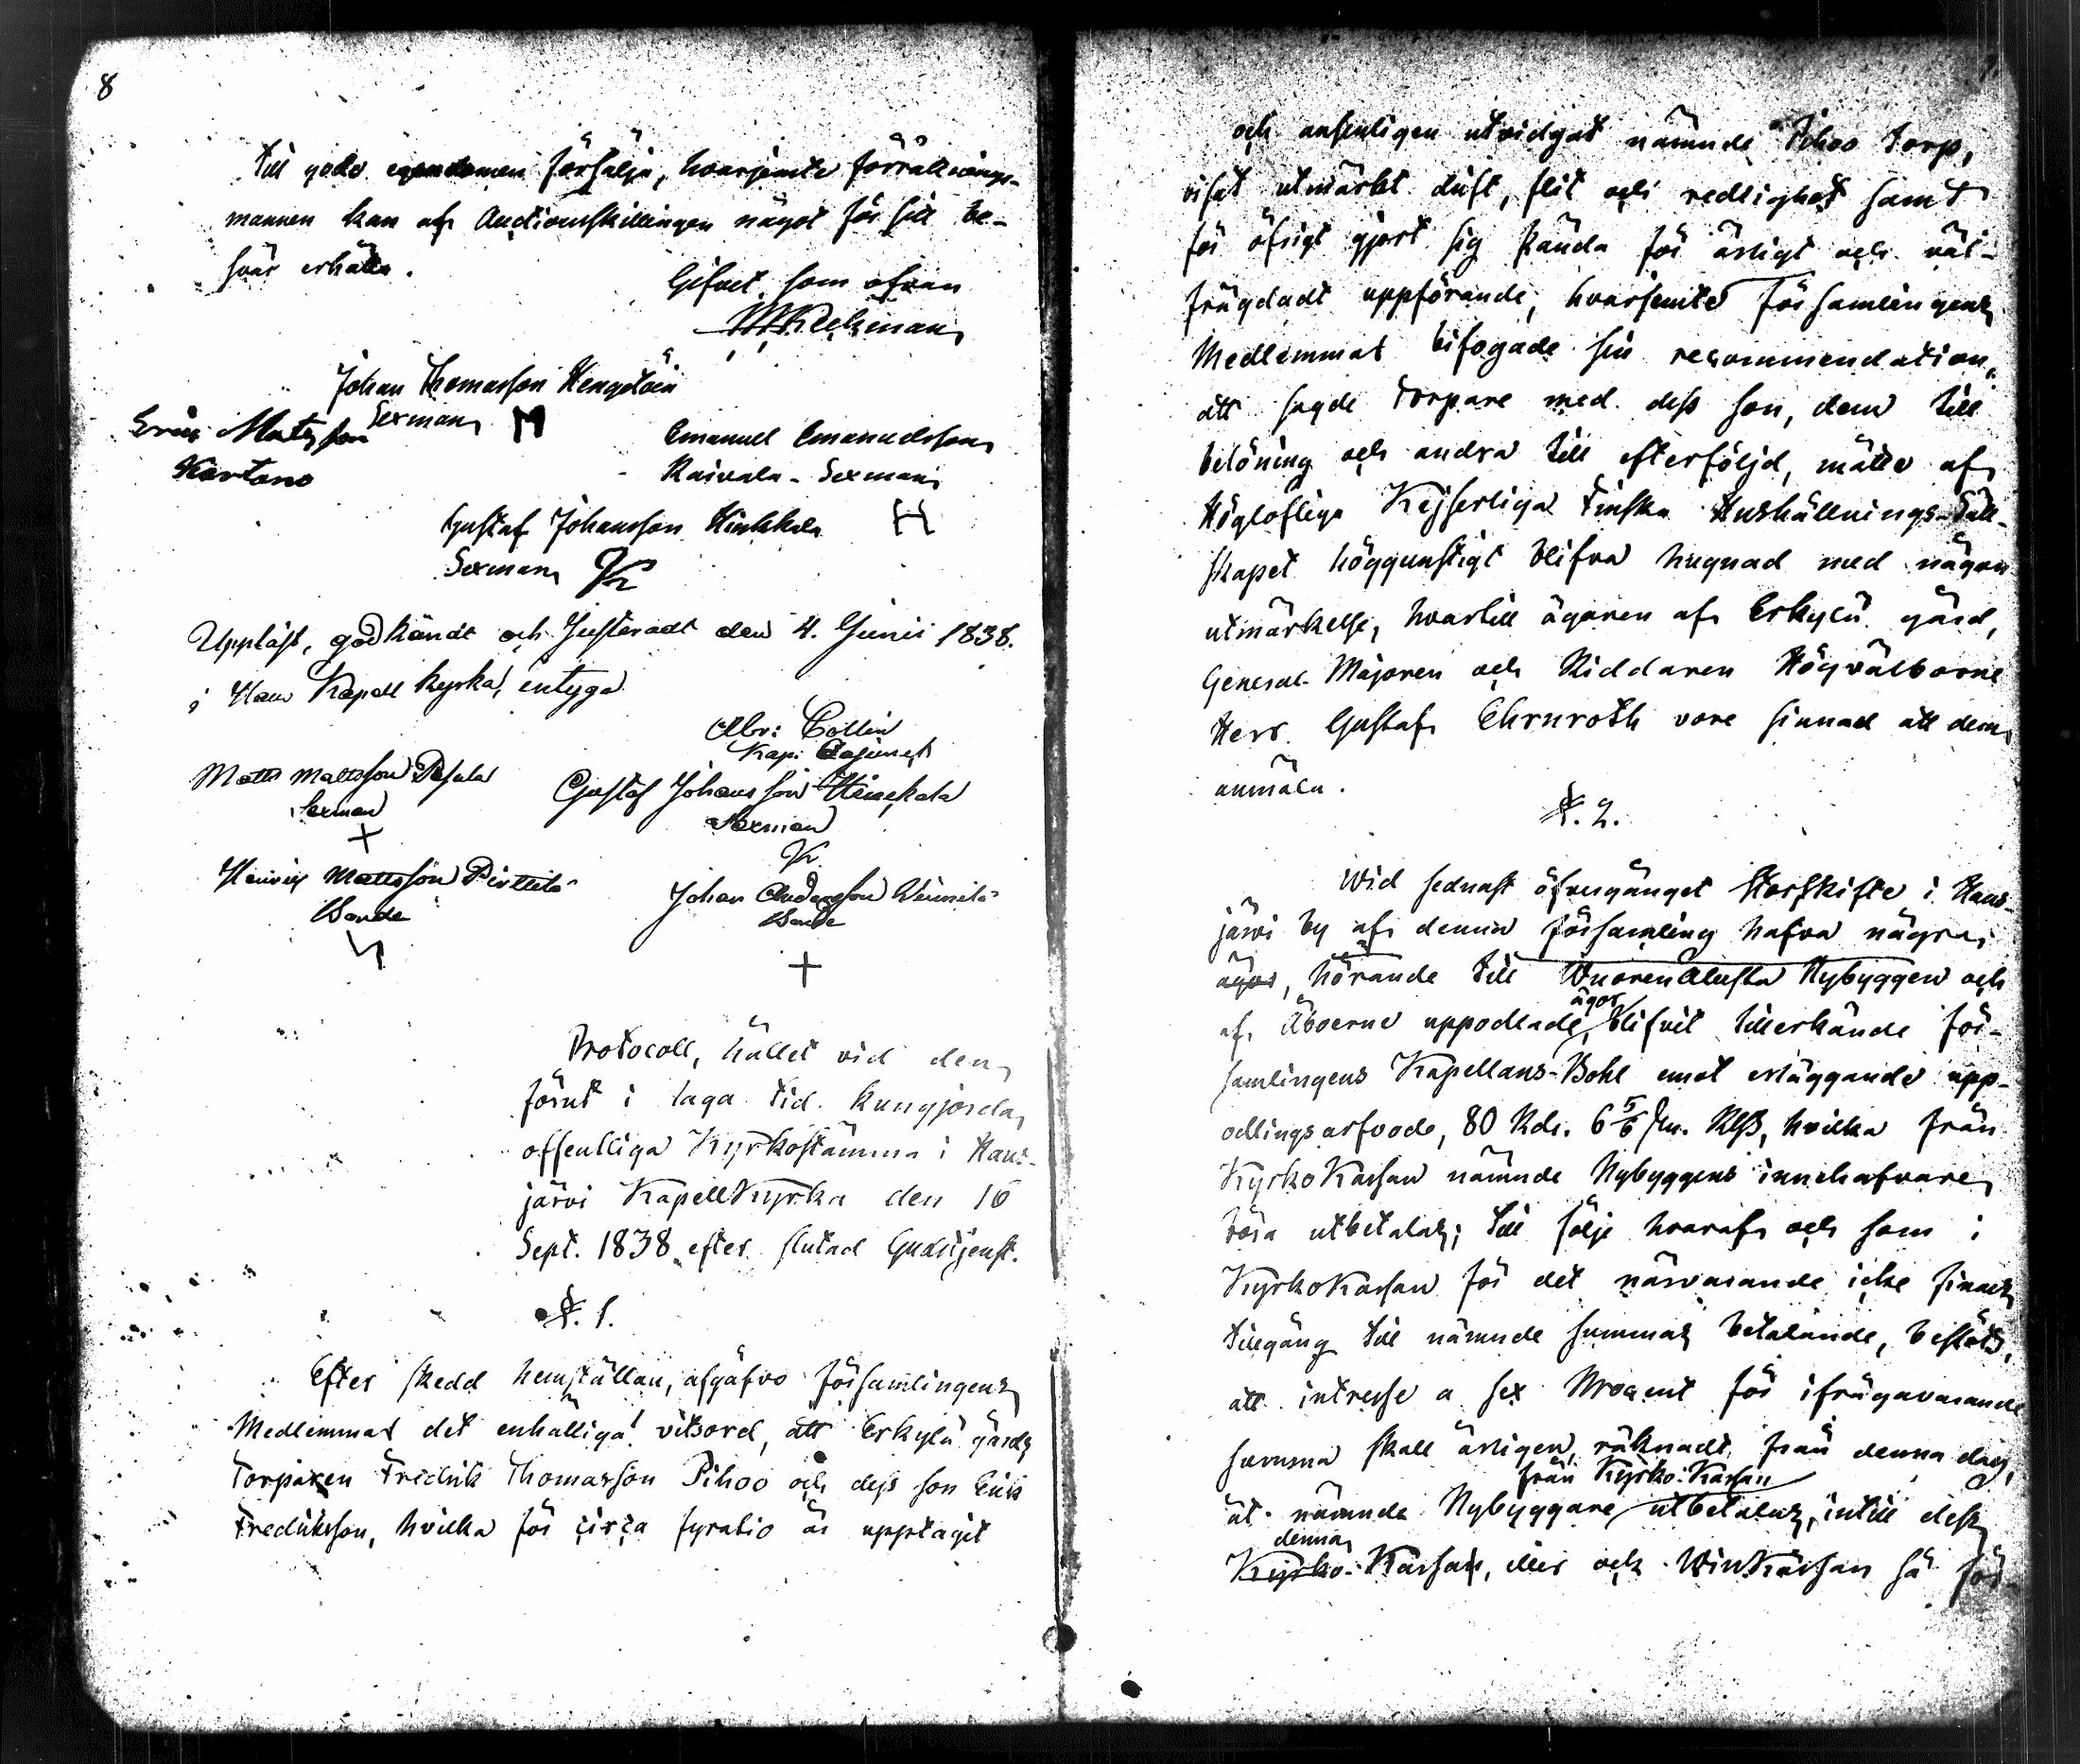 8
till godo egendomen försälja, hvarjemte förrättnings-
mannen kan af Auctionsskillingen något för sitt be-
svär erhålla.
Gifvet som ofvan
Johan Thomasson Hengstöin
Sexman
Eric Matsson
Kortono
Emanuel Emanuelsson
Raivala - Sexman
Gustaf Johansson Hinkkala
Sexman
Uppläst, godkändt och Justeradt den 4. Junii 1838.
i Haus Kapell kyrka, intyga
Abr: Collin
Kap: Adjunct
Matts Mattsson Pasula
Sexman
Gustaf Johansson Heinckala
Sexman
Henric Mattsson Pirttilä
Bonde
Johan Andersson Weinilä
Bonde
Protocoll, hållet vid den
förut i laga tid kungjorda
offentliga Kyrkostämma i Haus-
järvi Kapell Kyrka den 16
Sept. 1838 efter slutad Gudstjenst.
§. 1.
Efter skedd hemställan, afgåfvo församlingens
Medlemmar det enhälliga vitsord, att Erkylä gårds
Torparen Fredrik Thomasson Pihoo och dess son Erik
Fredriksson, hvilka för circa fyratio år upptagit
och ansenligen utvidgat nämnde Pihoo torp,
visat utmärkt drift, flit och redlighet samt
för öfrigt gjort sig kända för ärligt och väl-
frägdadt uppförande, hvarjemte församlingens
Medlemmar bifogade sin recommendation,
att sagde Torpare med dess son, dem till
belöning och andra till efterföljd, måtte af
Höglofliga Kejserliga Finska Hushållnings-Säll-
skapet höggunstigt blifva hugnad med någon
utmärkelse, hvartill ägaren af Erkylä gård,
General-Majoren och Riddaren Högvälborne
Herr Gustaf Ehrnroth vore sinnad att dem
anmäla.
§. 2.
Wid sednast öfvergånget Storskifte i Haus-
järvi by af denna församling hafva några
ägor, hörande till Wuorenalusta Nybyggen och
ägor
af Åboerne uppodlade, blifvit tillerkände för-
samlingens Kapellans-Bohl emot erläggande upp-
odlingsarfvode, 80 Rdr. 6 5/6 s. RGs, hvilka från
Kyrko Kassan nämnde Nybyggens innehafvare
böra utbetalas; till följe hvaraf och som i
KyrkoKassan för det närvarande icke finnes
tillgång till nämnde summas betalande, beslöts,
att intresse a sex Procent för ifrågavarande
summa skall årligen, räknadt från denna dag,
från Kyrko-Kassan
åt nämnde Nybyggare utbetalas, intill dess
denna
Kyrko-Kassan, eller ock WinKassan så för-